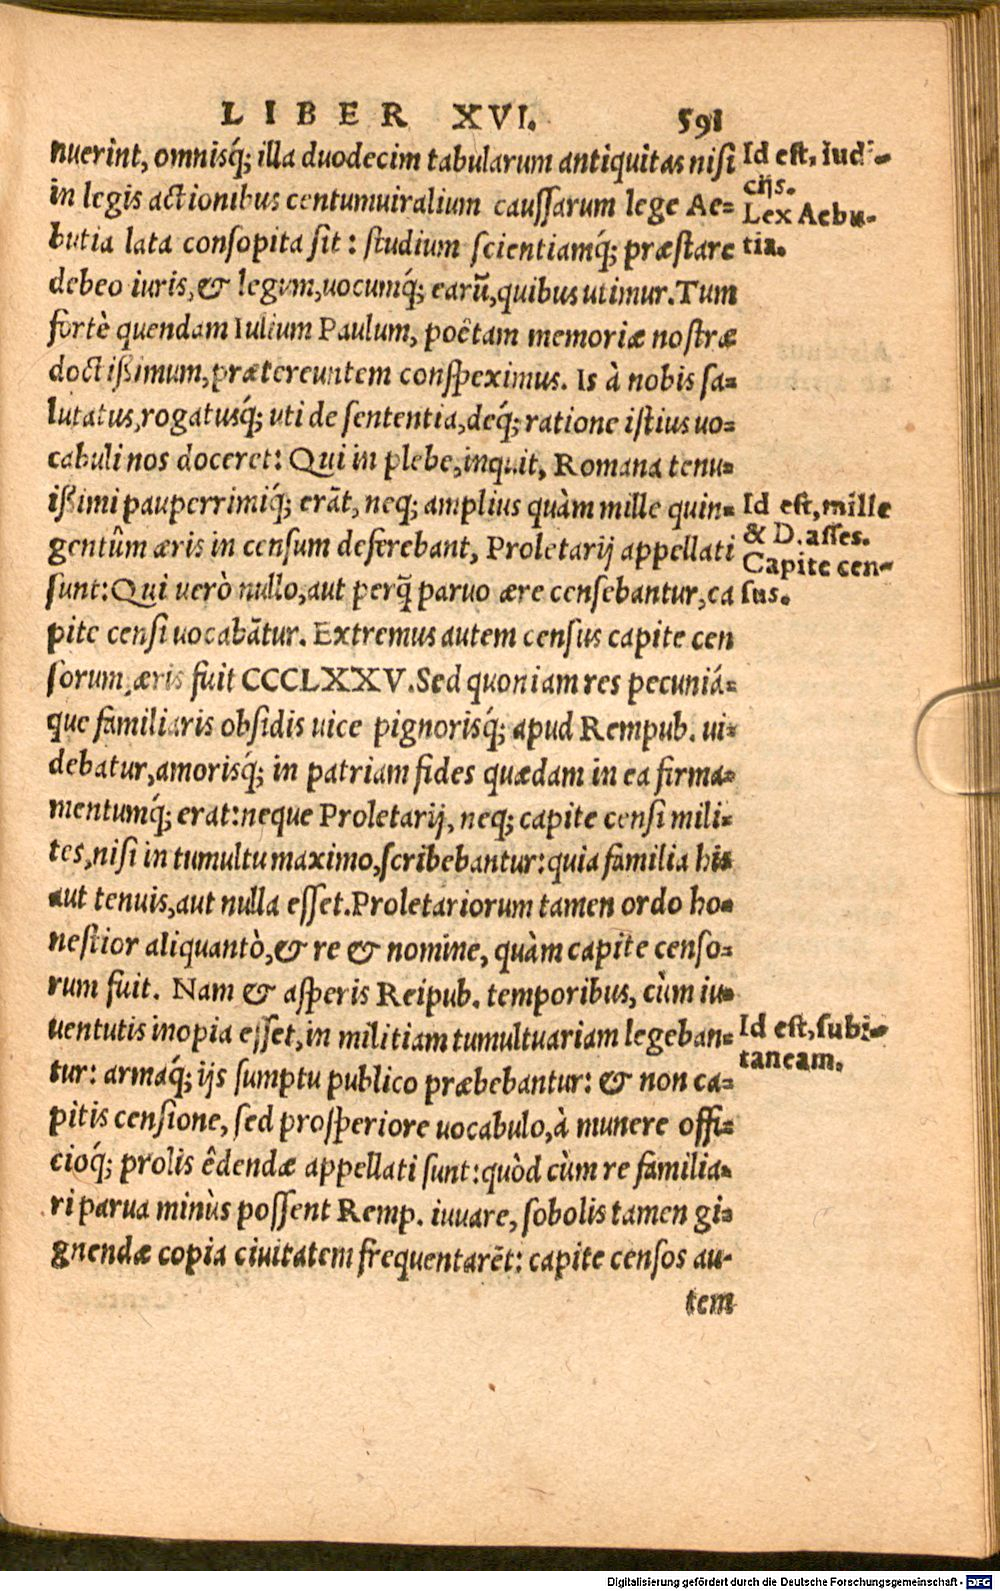 LIBER XVI. 591
nuerint, omnisq́; illa duodecim tabularum antiquitas nisi
in legis actionibus centumuiralium caussarum lege Ae-
butia lata consopita sit: studium scientiamq́; præstare
debeo iuris, & legum, uocumq́; earū, quibus utimur. Tum
fortè quendam Iulium Paulum, poêtam memoriæ nostræ
doctißimum, prætereuntem conspeximus. Is à nobis sa-
lutatus, rogatusq́; uti de sententia, deq́; ratione istius uo-
cabuli nos doceret: Qui in plebe, inquit, Romana tenu-
ißimi pauperrimiq́; erāt, neq; amplius quàm mille quin-
gentûm æris in censum deferebant, Proletarij appellati
sunt: Qui uerò nullo, aut perq̃ paruo ære censebantur, ca
pite censi uocabātur. Extremus autem census capite cen
sorum, æris fuit CCCLXXV. Sed quoniam res pecuniá-
que familiaris obsidis uice pignorisq́; apud Rempub. ui-
debatur, amorisq́; in patriam fides quædam in ea firma-
mentumq́; erat: neque Proletarij, neq; capite censi mili-
tes, nisi in tumultu maximo, scribebantur: quia familia his
aut tenuis, aut nulla esset. Proletariorum tamen ordo ho-
nestior aliquantò, & re & nomine, quàm capite censo-
rum fuit. Nam & asperis Reipub. temporibus, cùm iu-
uentutis inopia esset, in militiam tumultuariam legeban-
tur: armaq́; ijs sumptu publico præbebantur: & non ca-
pitis censione, sed prosperiore uocabulo, à munere offi-
cioq́; prolis êdendæ appellati sunt: quòd cùm re familia-
ri parua minùs possent Remp. iuuare, sobolis tamen gi-
gnendæ copia ciuitatem frequentarēt: capite censos au-
tem
Id est, iudi-
cijs.
Lex Aebu-
tia.
Id est, mille
& D. asses.
Capite cen-
sus.
Id est, subi-
taneam.
Digitalisierung gefördert durch die Deutsche Forschungsgemeinschaft - DFG